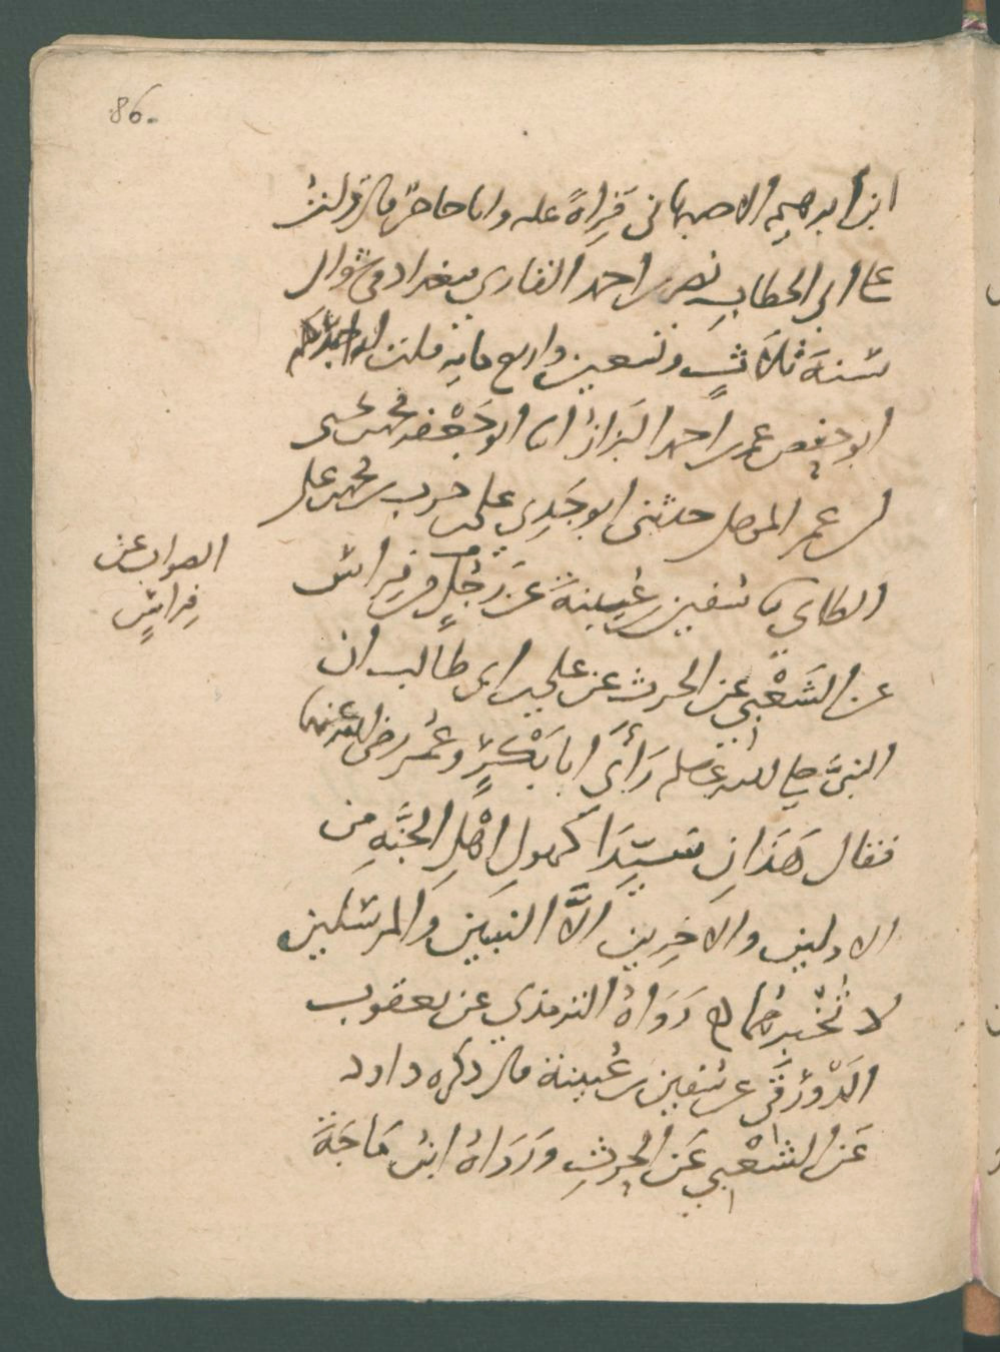 86.
ابن ابرهيم الاصبهاني قِراةً عليه وانا حاضر قال قرات
على ابي الخطاب نصر بن احمد القاري ببغداد في شوال
سنة ثلاثٍ وتسعين واربع ماية قلت له اخبركم
ابو حفص عمر بن احمد البَزاز انا ابو جَعْفر محمد بن يحيى
بن عمر الموصلي حدثني ابو جَدِي علي بن حرب بن محمد بن علي
الطاي نا سفين بن عُيينة عن رجُلٍ و فِراس
عن الشَعْبي عن الحرث عن علي بن ابي طالب ان
النبيَّ صلى الله عليه وسلم رَأَى ابا بَكْرٍ وعُمر رضي الله عنهما
فقال هَذَانِ سَيِّدَا كهولِ اهْلِ الجنَّةِ من
الاولين والاخِرين الَّا النبيين والمرسلين
لا تُخْبرهُما رَوَاهُ الترمذي عن يعقوب
الدَوْرَقي عن سفين بن عُيينة قال ذكره داود
عَن الشَعْبي عَن الحرثِ ورَوَاهُ ابنُ مَاجَةَ
الصواب عن
فِراسٍ